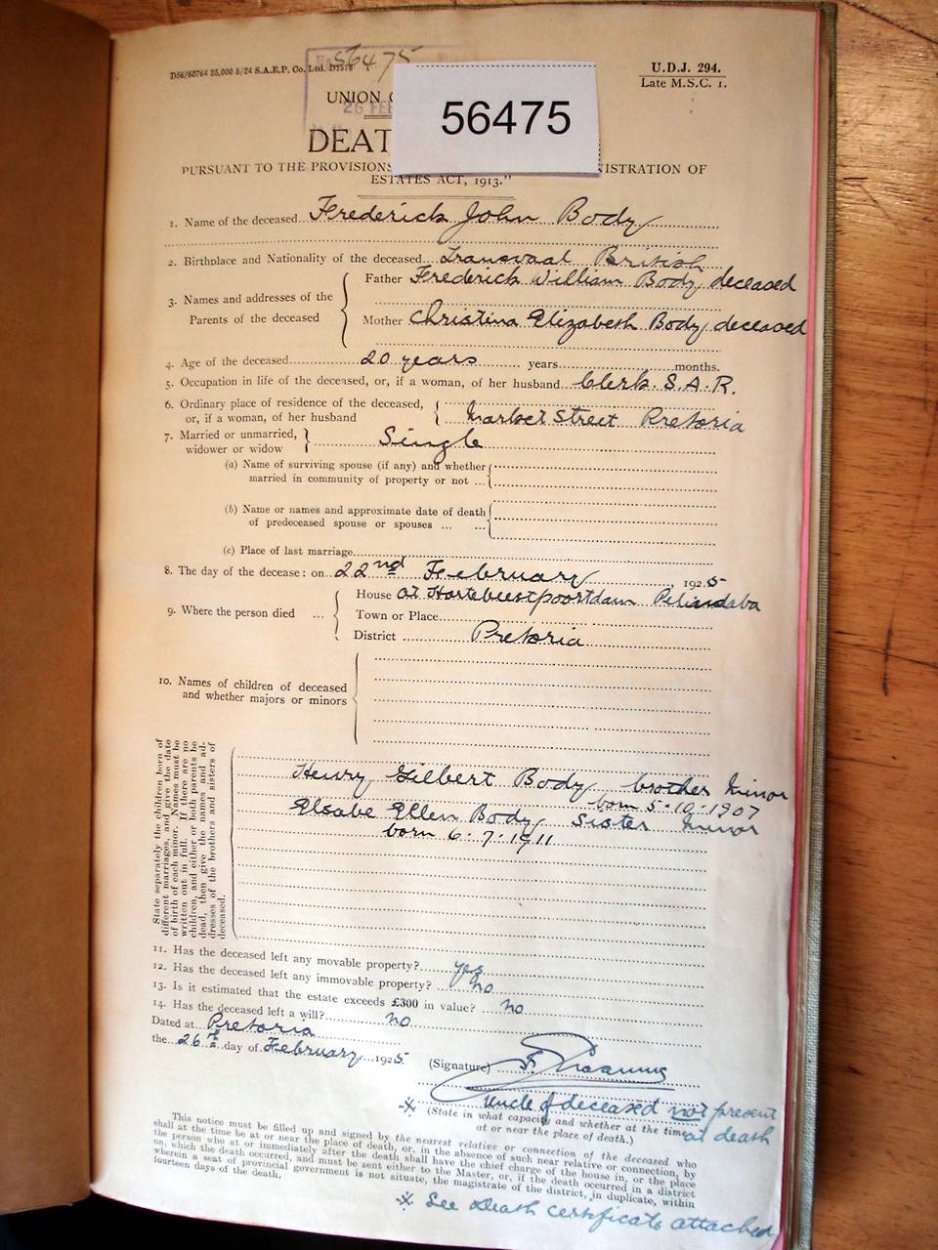 D56/60764 25,000 5/24 S.A.E.P. Co. Ltd.
56475
U.D.J. 294.
Late M.S.C. 1.
UNION
26 FE
56475
DEAT
PURSUANT TO THE PROVISIONS NISTRATION OF
ESTATES ACT, 1913."
1. Name of the deceased Frederick John Body
2. Birthplace and Nationality of the deceased Transvaal British
3. Names and addresses of the Parents of the deceased
Father Frederick William Body deceased
Mother Christina Elizabeth Body deceased
4. Age of the deceased 20 years years months.
5. Occupation in life of the deceased, or, if a woman, of her husband Clerk. S.A.R.
6. Ordinary place of residence of the deceased,
or, if a woman, of her husband Market Street Pretoria
7. Married or unmarried,
widower or widow Single
(a) Name of surviving spouse (if any) and whether
married in community of property or not ...
(b) Name or names and approximate date of death
of predeceased spouse or spouses ... ...
(c) Place of last marriage
8. The day of the decease: on 22nd February, 1925
9. Where the person died ...
House at Hartebeestpoortdam Pelindaba
Town or Place
District Pretoria
10. Names of children of deceased
and whether majors or minors
State separately the children born of
different marriages, and give the date
of birth of each minor. Names must be
written out in full. If there are no
children, and either or both parents be
dead, then give the names and ad-
dresses of the brothers and sisters of
deceased.
Henry Gilbert Body brother Minor
born 5-10-1907
Elsabe Ellen Body Sister Minor
born 6-7-1911
11. Has the deceased left any movable property? yes
12. Has the deceased left any immovable property? no
13. Is it estimated that the estate exceeds £300 in value? no
14. Has the deceased left a will? no
Dated at Pretoria
the 26th day of February 1925
(Signature)
* Uncle of deceased not present
(State in what capacity and whether at the time
at death
at or near the place of death.)
This notice must be filled up and signed by the nearest relative or connection of the deceased who
shall at the time be at or near the place of death, or, in the absence of such near relative or connection, by
the person who at or immediately after the death shall have the chief charge of the house in, or the place
on, which the death occurred, and must be sent either to the Master, or, if the death occurred in a district
wherein a seat of provincial government is not situate, the magistrate of the district, in duplicate, within
fourteen days of the death.
* See Death certificate attached